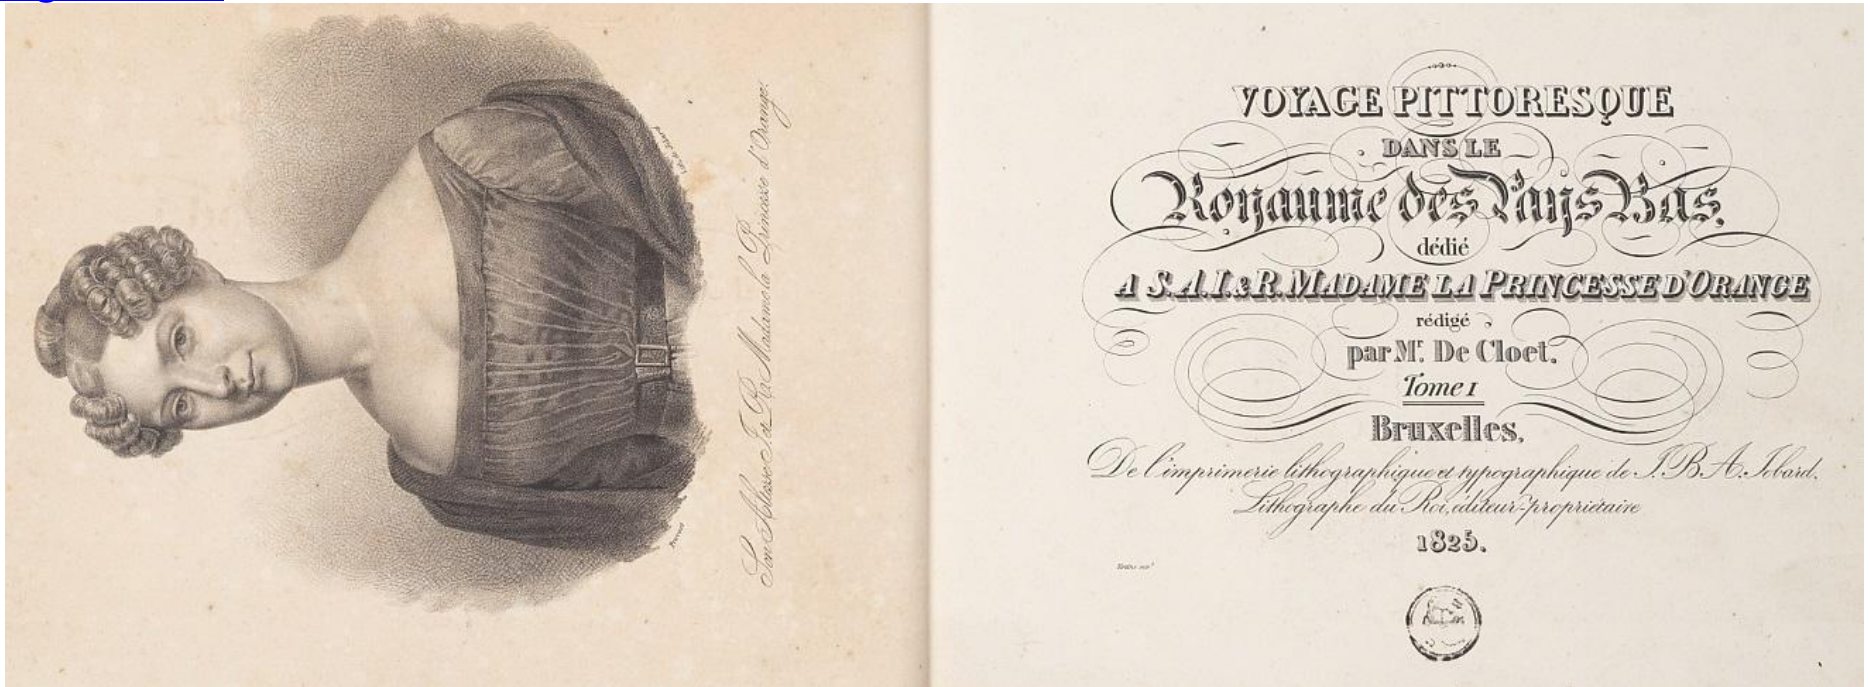 Son Altesse I. & R. Madame la Princesse d'Orange.
VOYAGE PITTORESQUE
DANS LE
Royaume des Pays Bas,
dédié
A S. A. I. & R. MADAME LA PRINCESSE D'ORANGE
rédigé
par Mr. De Cloet.
Tome I
Bruxelles,
De l'imprimerie lithographique et typographique de J. B. A. Jobard,
Lithographe du Roi, éditeur-propriétaire
1825.